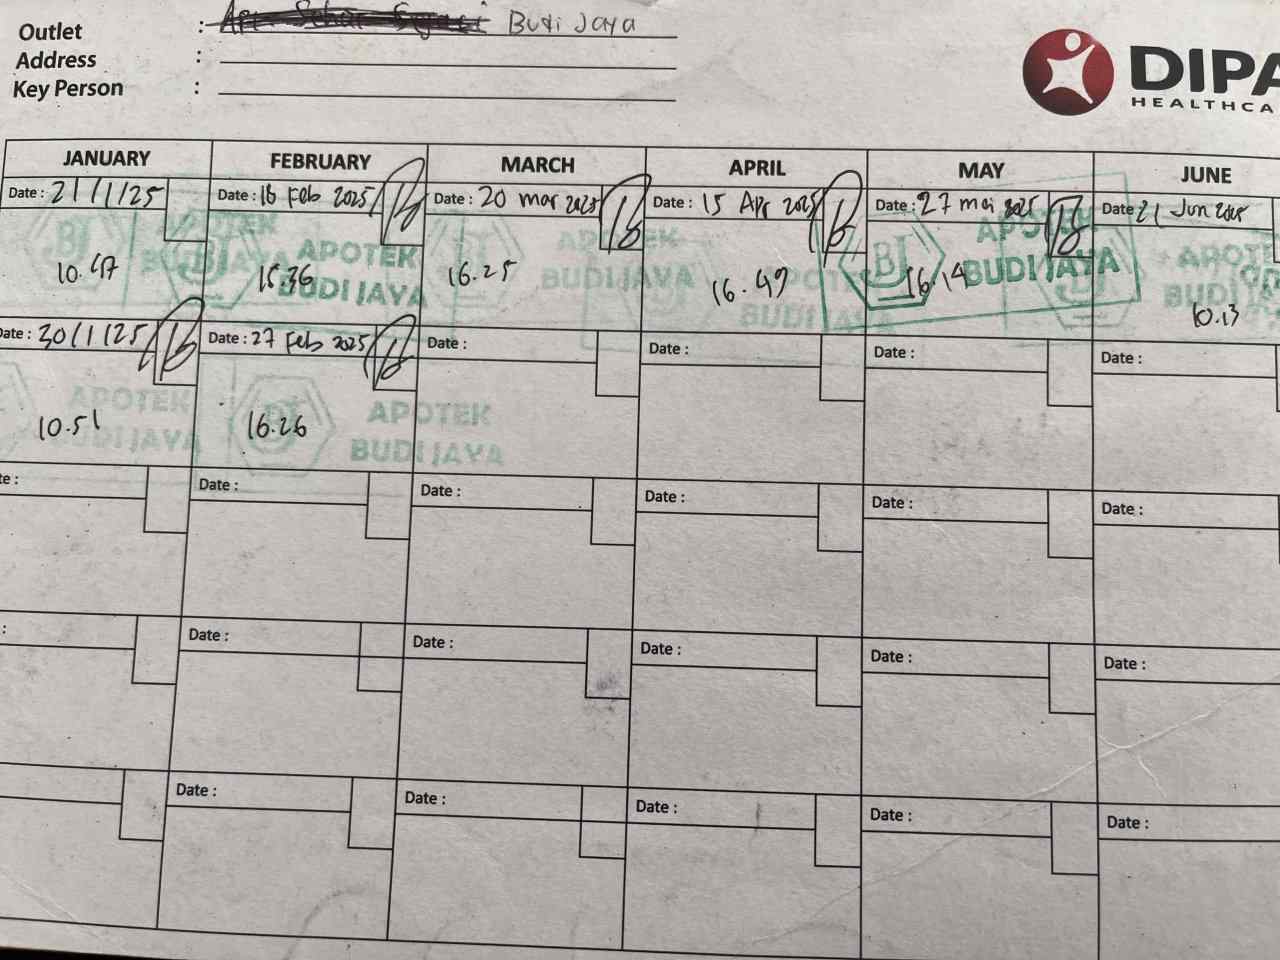 Outlet : Budi Jaya
Address :
Key Person :
DIPA
HEALTHCA
JANUARY FEBRUARY MARCH APRIL MAY JUNE
Date : 21/1/25 Date : 18 Feb 2025 Date : 20 mar 2025 Date : 15 Apr 2025 Date : 27 mei 2025 Date 21 Jun 2025
APOTEK BUDI JAYA APOTEK BUDI JAYA APOTEK BUDI JAYA APOTEK BUDI JAYA APOTEK BUDI JAYA
10.47 15.36 16.25 16.49 16.14 10.13
Date : 30/1/25 Date : 27 Feb 2025 Date : Date : Date : Date :
APOTEK BUDI JAYA APOTEK BUDI JAYA
10.51 16.26
te : Date : Date : Date : Date : Date :
: Date : Date : Date : Date : Date :
Date : Date : Date : Date : Date :